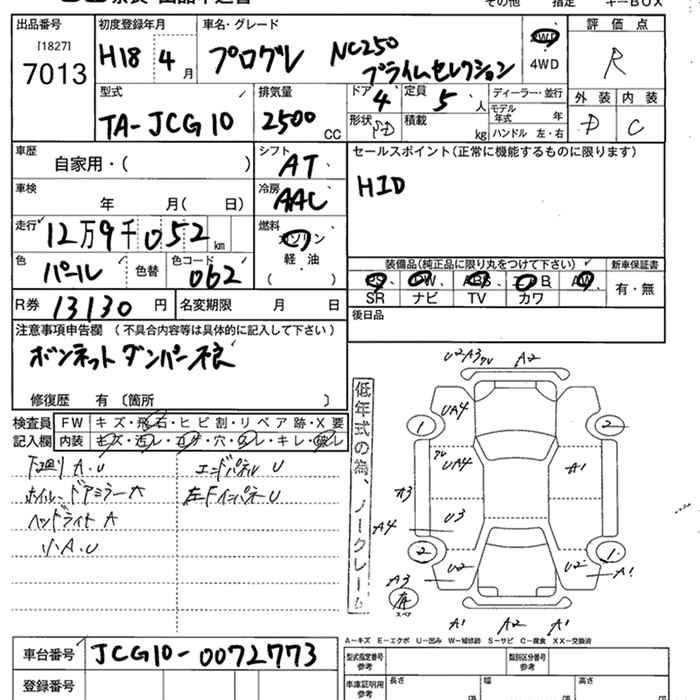 出品番号 初度登録年月 車名・グレード 評価点
[1827]
7013 H18 4月 プログレ NC250 プライムセレクション 2WD 4WD R
型式 排気量 ドア 定員 ディーラー・並行 外装 内装
TA-JCG10 2500 CC 4 5人 モデル年式 年 D C
形状 積載 kg ハンドル 左・右
車歴 シフト セールスポイント(正常に機能するものに限ります)
自家用・( ) AT HID
車検 冷房
年 月( 日) AAC
走行 12万9千052 km 燃料 ガソリン
軽油
( )
色 パール 色替 色コード 062
装備品(純正品に限り丸をつけて下さい) 新車保証書
PS PW ABS AW 有・無
SR ナビ TV カワ
R券 13130円 名変期限 月 日 後日品
注意事項申告欄 (不具合内容等は具体的に記入して下さい)
ボンネットダンパー不良
修復歴 有 〔箇所 〕
検査員 FW キズ・飛石・ヒビ割・リペア跡・X要
記入欄 内装 キズ・汚レ・コゲ・穴・スレ・キレ・破レ
下廻り A.U エンドパネル U
ホイル、ドアミラー A 左Fインパネ U
ヘッドライト A
小A.U
低年式の為、ノークレーム
U2 A3 ワレ A2
UA4
1 2
ワレ
UA4 A1
A3
U3
A4
2 1
U2 U2 A1
A3
有
スペア
A1 A2 A1
A-キズ E-エクボ U-凹み W-補修跡 S-サビ C-腐食 XX-交換済
車台番号 JCG10-0072773 型式指定番号 参考 類別区分番号 参考
登録番号 車庫証明用 参考 長さ 幅 高さ